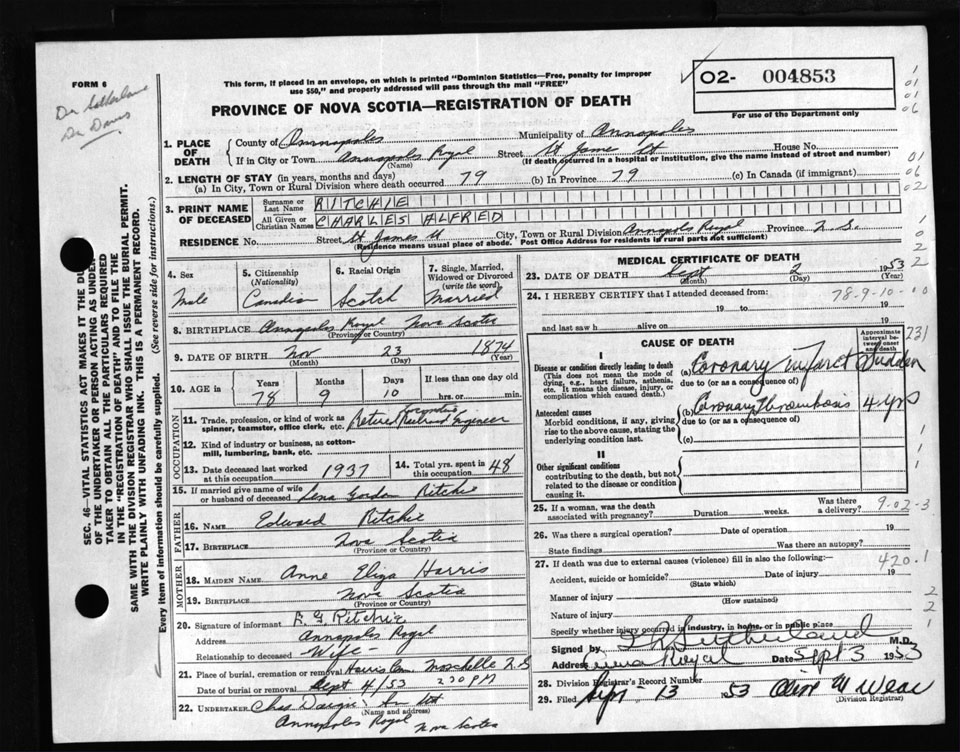 FORM 6
Dr Sutherland
Dr Daws
This form, if placed in an envelope, on which is printed "Dominion Statistics—Free, penalty for improper
use $50," and properly addressed will pass through the mail "FREE"
PROVINCE OF NOVA SCOTIA—REGISTRATION OF DEATH
02- 004853
For use of the Department only
1. PLACE OF DEATH
County of Annapolis Municipality of Annapolis
If in City or Town Annapolis Royal Street St James St House No.
(Name) (If death occurred in a hospital or institution, give the name instead of street and number)
2. LENGTH OF STAY (in years, months and days)
(a) In City, Town or Rural Division where death occurred 79 (b) In Province 79 (c) In Canada (if immigrant)
3. PRINT NAME OF DECEASED
Surname or Last Name RITCHIE
All Given or Christian Names CHARLES ALFRED
RESIDENCE No. Street St James St City, Town or Rural Division Annapolis Royal Province N.S.
(Residence means usual place of abode. Post Office Address for residents in rural parts not sufficient)
4. Sex Male
5. Citizenship (Nationality) Canadian
6. Racial Origin Scotch
7. Single, Married, Widowed or Divorced (write the word) Married
8. BIRTHPLACE Annapolis Royal Nova Scotia
(Province or Country)
9. DATE OF BIRTH Nov 23 1874
(Month) (Day) (Year)
10. AGE IN Years Months Days If less than one day old
78 9 10 hrs. or min.
OCCUPATION
11. Trade, profession, or kind of work as spinner, teamster, office clerk, etc. Retired Locomotive Railroad Engineer
12. Kind of industry or business, as cotton-mill, lumbering, bank, etc.
13. Date deceased last worked at this occupation 1937 14. Total yrs. spent in this occupation 48
15. If married give name of wife or husband of deceased Lena Gordon Ritchie
FATHER
16. NAME Edward Ritchie
17. BIRTHPLACE Nova Scotia
(Province or Country)
MOTHER
18. MAIDEN NAME Anne Eliza Harris
19. BIRTHPLACE Nova Scotia
(Province or Country)
20. Signature of informant L. G. Ritchie
Address Annapolis Royal
Relationship to deceased Wife-
21. Place of burial, cremation or removal Harris Cem Moschelle N.S
Date of burial or removal Sept 4/53 2 30 PM
22. UNDERTAKER
(Name and address)
Annapolis Royal Nova Scotia
MEDICAL CERTIFICATE OF DEATH
23. DATE OF DEATH Sept 2 1953
(Month) (Day) (Year)
24. I HEREBY CERTIFY that I attended deceased from:
78-9-10-10
19 to 19
and last saw h alive on 19
CAUSE OF DEATH
Approximate interval between onset and death
I
Disease or condition directly leading to death
(This does not mean the mode of dying, e.g., heart failure, asthenia, etc. It means the disease, injury, or complication which caused death.)
(a) Coronary Infarct Sudden
due to (or as a consequence of)
Antecedent causes
Morbid conditions, if any, giving rise to the above cause, stating the underlying condition last.
(b) Coronary Thrombosis 4 yrs
due to (or as a consequence of)
(c)
II
Other significant conditions
contributing to the death, but not related to the disease or condition causing it.
25. If a woman, was the death associated with pregnancy? Duration weeks. Was there a delivery?
9-02-3
26. Was there a surgical operation? Date of operation 19
State findings Was there an autopsy?
27. If death was due to external causes (violence) fill in also the following:
420.1
Accident, suicide or homicide? Date of injury 19
(State which)
Manner of injury
(How sustained)
Nature of injury
Specify whether injury occurred in industry, in home, or in public place
Signed by Sutherland M.D.
Address Anna Royal Date Sept 3 1953
28. Division Registrar's Record Number
29. Filed Sept 13 1953
(Division Registrar)
SEC. 46—VITAL STATISTICS ACT MAKES IT THE DUTY
OF THE UNDERTAKER OR PERSON ACTING AS UNDER-
TAKER TO OBTAIN ALL THE PARTICULARS REQUIRED
IN THE "REGISTRATION OF DEATH" AND TO FILE THE
SAME WITH THE DIVISION REGISTRAR WHO SHALL ISSUE THE BURIAL PERMIT.
WRITE PLAINLY WITH UNFADING INK. THIS IS A PERMANENT RECORD.
Every item of information should be carefully supplied. (See reverse side for instructions.)
231